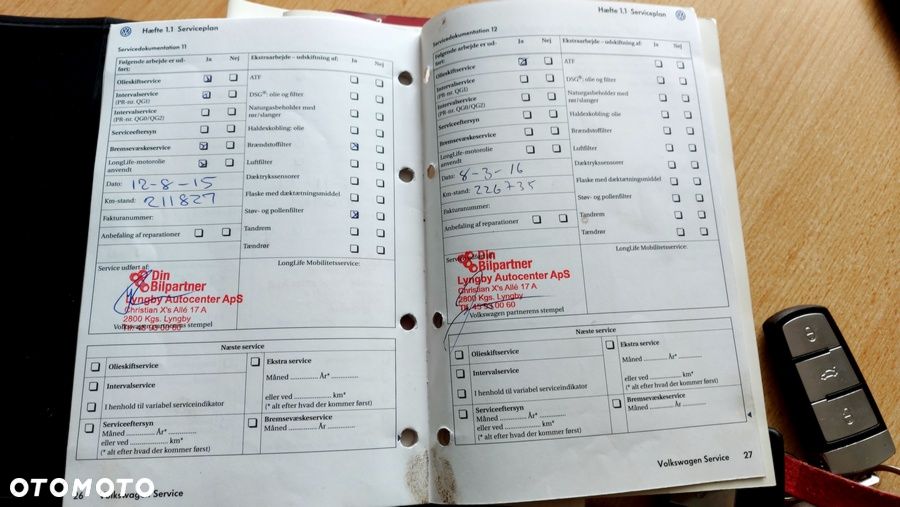 Hæfte 1.1 Serviceplan
Servicedokumentation 11
Følgende arbejde er udført: Ja Nej
Ekstraarbejde - udskiftning af: Ja Nej
Olieskiftservice
Intervalservice
(PR-nr. QG1)
Intervalservice
(PR-nr. QG0/QG2)
Serviceeftersyn
Bremsevæskeservice
LongLife-motorolie
anvendt
Dato: 12-8-15
Km-stand: 211827
Fakturanummer:
Anbefaling af reparationer
ATF
DSG®: olie og filter
Naturgasbeholder med
rør/slanger
Haldexkobling: olie
Brændstoffilter
Luftfilter
Dæktryksensorer
Flaske med dæktætningsmiddel
Støv- og pollenfilter
Tandrem
Tændrør
Service udført af:
LongLife Mobilitetsservice:
Din
Bilpartner
Lyngby Autocenter ApS
Christian X's Allé 17 A
2800 Kgs. Lyngby
Volkswagen partnerens stempel
Næste service
Olieskiftservice
Intervalservice
I henhold til variabel serviceindikator
Serviceeftersyn
Måned .............. År* ..............
eller ved .................... km*
(* alt efter hvad der kommer først)
Ekstra service
Måned .............. År* ..............
eller ved .................... km*
(* alt efter hvad der kommer først)
Bremsevæskeservice
Måned .............. År ..............
26 Volkswagen Service
Hæfte 1.1 Serviceplan
Servicedokumentation 12
Følgende arbejde er udført: Ja Nej
Ekstraarbejde - udskiftning af: Ja Nej
Olieskiftservice
Intervalservice
(PR-nr. QG1)
Intervalservice
(PR-nr. QG0/QG2)
Serviceeftersyn
Bremsevæskeservice
LongLife-motorolie
anvendt
Dato: 8-3-16
Km-stand: 226735
Fakturanummer:
Anbefaling af reparationer
ATF
DSG®: olie og filter
Naturgasbeholder med
rør/slanger
Haldexkobling: olie
Brændstoffilter
Luftfilter
Dæktryksensorer
Flaske med dæktætningsmiddel
Støv- og pollenfilter
Tandrem
Tændrør
LongLife Mobilitetsservice:
Din
Bilpartner
Lyngby Autocenter ApS
Christian X's Allé 17 A
2800 Kgs. Lyngby
Volkswagen partnerens stempel
Næste service
Olieskiftservice
Intervalservice
I henhold til variabel serviceindikator
Serviceeftersyn
Måned .............. År* ..............
eller ved .................... km*
(* alt efter hvad der kommer først)
Ekstra service
Måned .............. År* ..............
eller ved .................... km*
(* alt efter hvad der kommer først)
Bremsevæskeservice
Måned .............. År ..............
Volkswagen Service 27
OTOMOTO